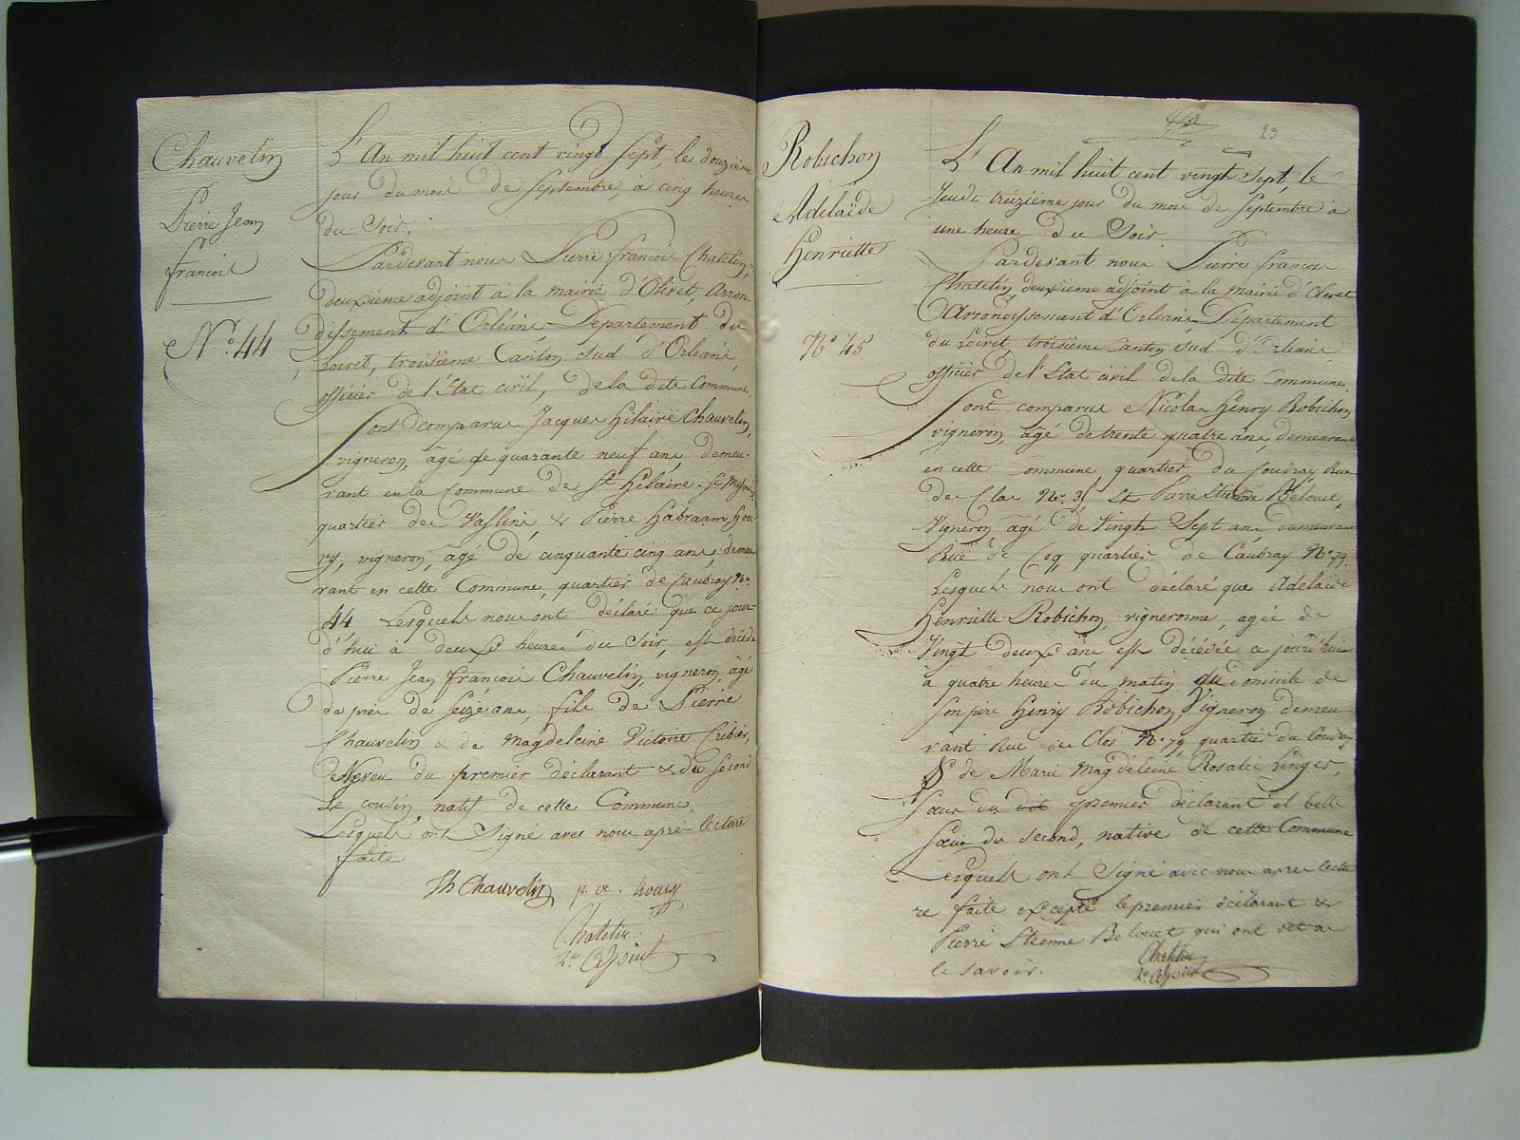 Chauvelin
Pierre Jean
francois
N.o 44
L'An mil huit cent vingt sept, le douzième
jour du mois de Septembre, à cinq heures
du Soir.
Pardevant nous Pierre francois Chatelin,
deuxieme adjoint à la mairie d'Olivet, Arron
dissement d'Orléans Département du
Loiret, troisième Canton sud d'Orléans,
officier de l'Etat civil, de la dite Commune,
Sont comparus Jacques Hilaire Chauvelin,
vigneron, agé de quarante neuf ans demeu-
rant en la Commune de St Hilaire St
quartier de & Pierre Habraam Hou
ry, vigneron, agé de cinquante cinq ans, demeu
rant en cette Commune, quartier de Caubray No
44 Lesquels nous ont déclaré que ce jour-
d'hui à deux heures du Soir, est décédé
Pierre Jean francois Chauvelin, vigneron, agé
de près de seize ans, fils de Pierre
Chauvelin & de Magdeleine Victoire Cribier,
Neveu du premier déclarant & du second
Le cousin, natif de cette Commune.
Lesquels ont Signé avec nous après lecture
faite
Jh Chauvelin p. a. houry
Chatelin
2e Adjoint
Robichon
Adelaïde
Henriette
No 45
23
L'An mil huit cent vingt sept, le
Jeudi treizième jour du mois de Septembre à
une heure du Soir.
Pardevant nous Pierre francois
Chatelin, deuxieme adjoint à la mairie d'Olivet
Arrondissement d'Orléans Département
du Loiret, troisième Canton sud d'Orléans
officier de l'Etat civil de la dite Commune,
Sont comparus Nicolas Henry Robichon
vigneron, agé de trente quatre ans, demeurant
en cette commune quartier du Coudray Rue
de Clos No 3 & Pierre Etienne Belouet,
Vigneron agé de Vingt Sept ans demeurant
Rue de Coq quartier de Caubray No 79.
Lesquels nous ont déclaré que Adelaïde
Henriette Robichon, vigneronne, agée de
Vingt deux ans est décédée ce jourd'hui
à quatre heures du matin, au domicile de
son père Henry Robichon, Vigneron demeu
rant Rue de Clos No 79 quartier du Coudray
& de Marie Magdeleine Rosalie Linger,
Soeur du dit premier déclarant et belle
Soeur du second, native de cette Commune
Lesquels ont Signé avec nous apres lectu
re faite excepté le premier déclarant &
Pierre Etienne Belouet qui ont dit ne
le savoir.
Chatelin
2e Adjoint